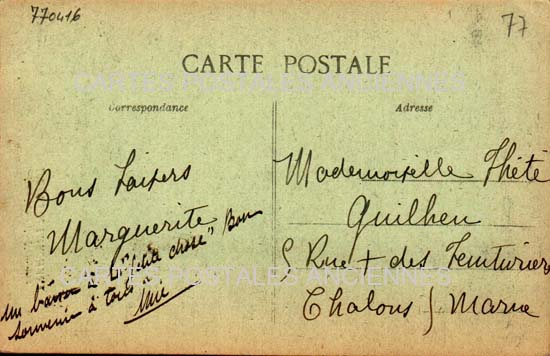 770416
77
CARTE POSTALE
CARTES POSTALES ANCIENNES
Correspondance
Adresse
Bons baisers
Marguerite
Un à "petite chose" Bon
souvenir à tous
Mademoiselle Thété
Guilhen
5 Rue des Teinturiers
Chalons s/ Marne
CARTES POSTALES ANCIENNES